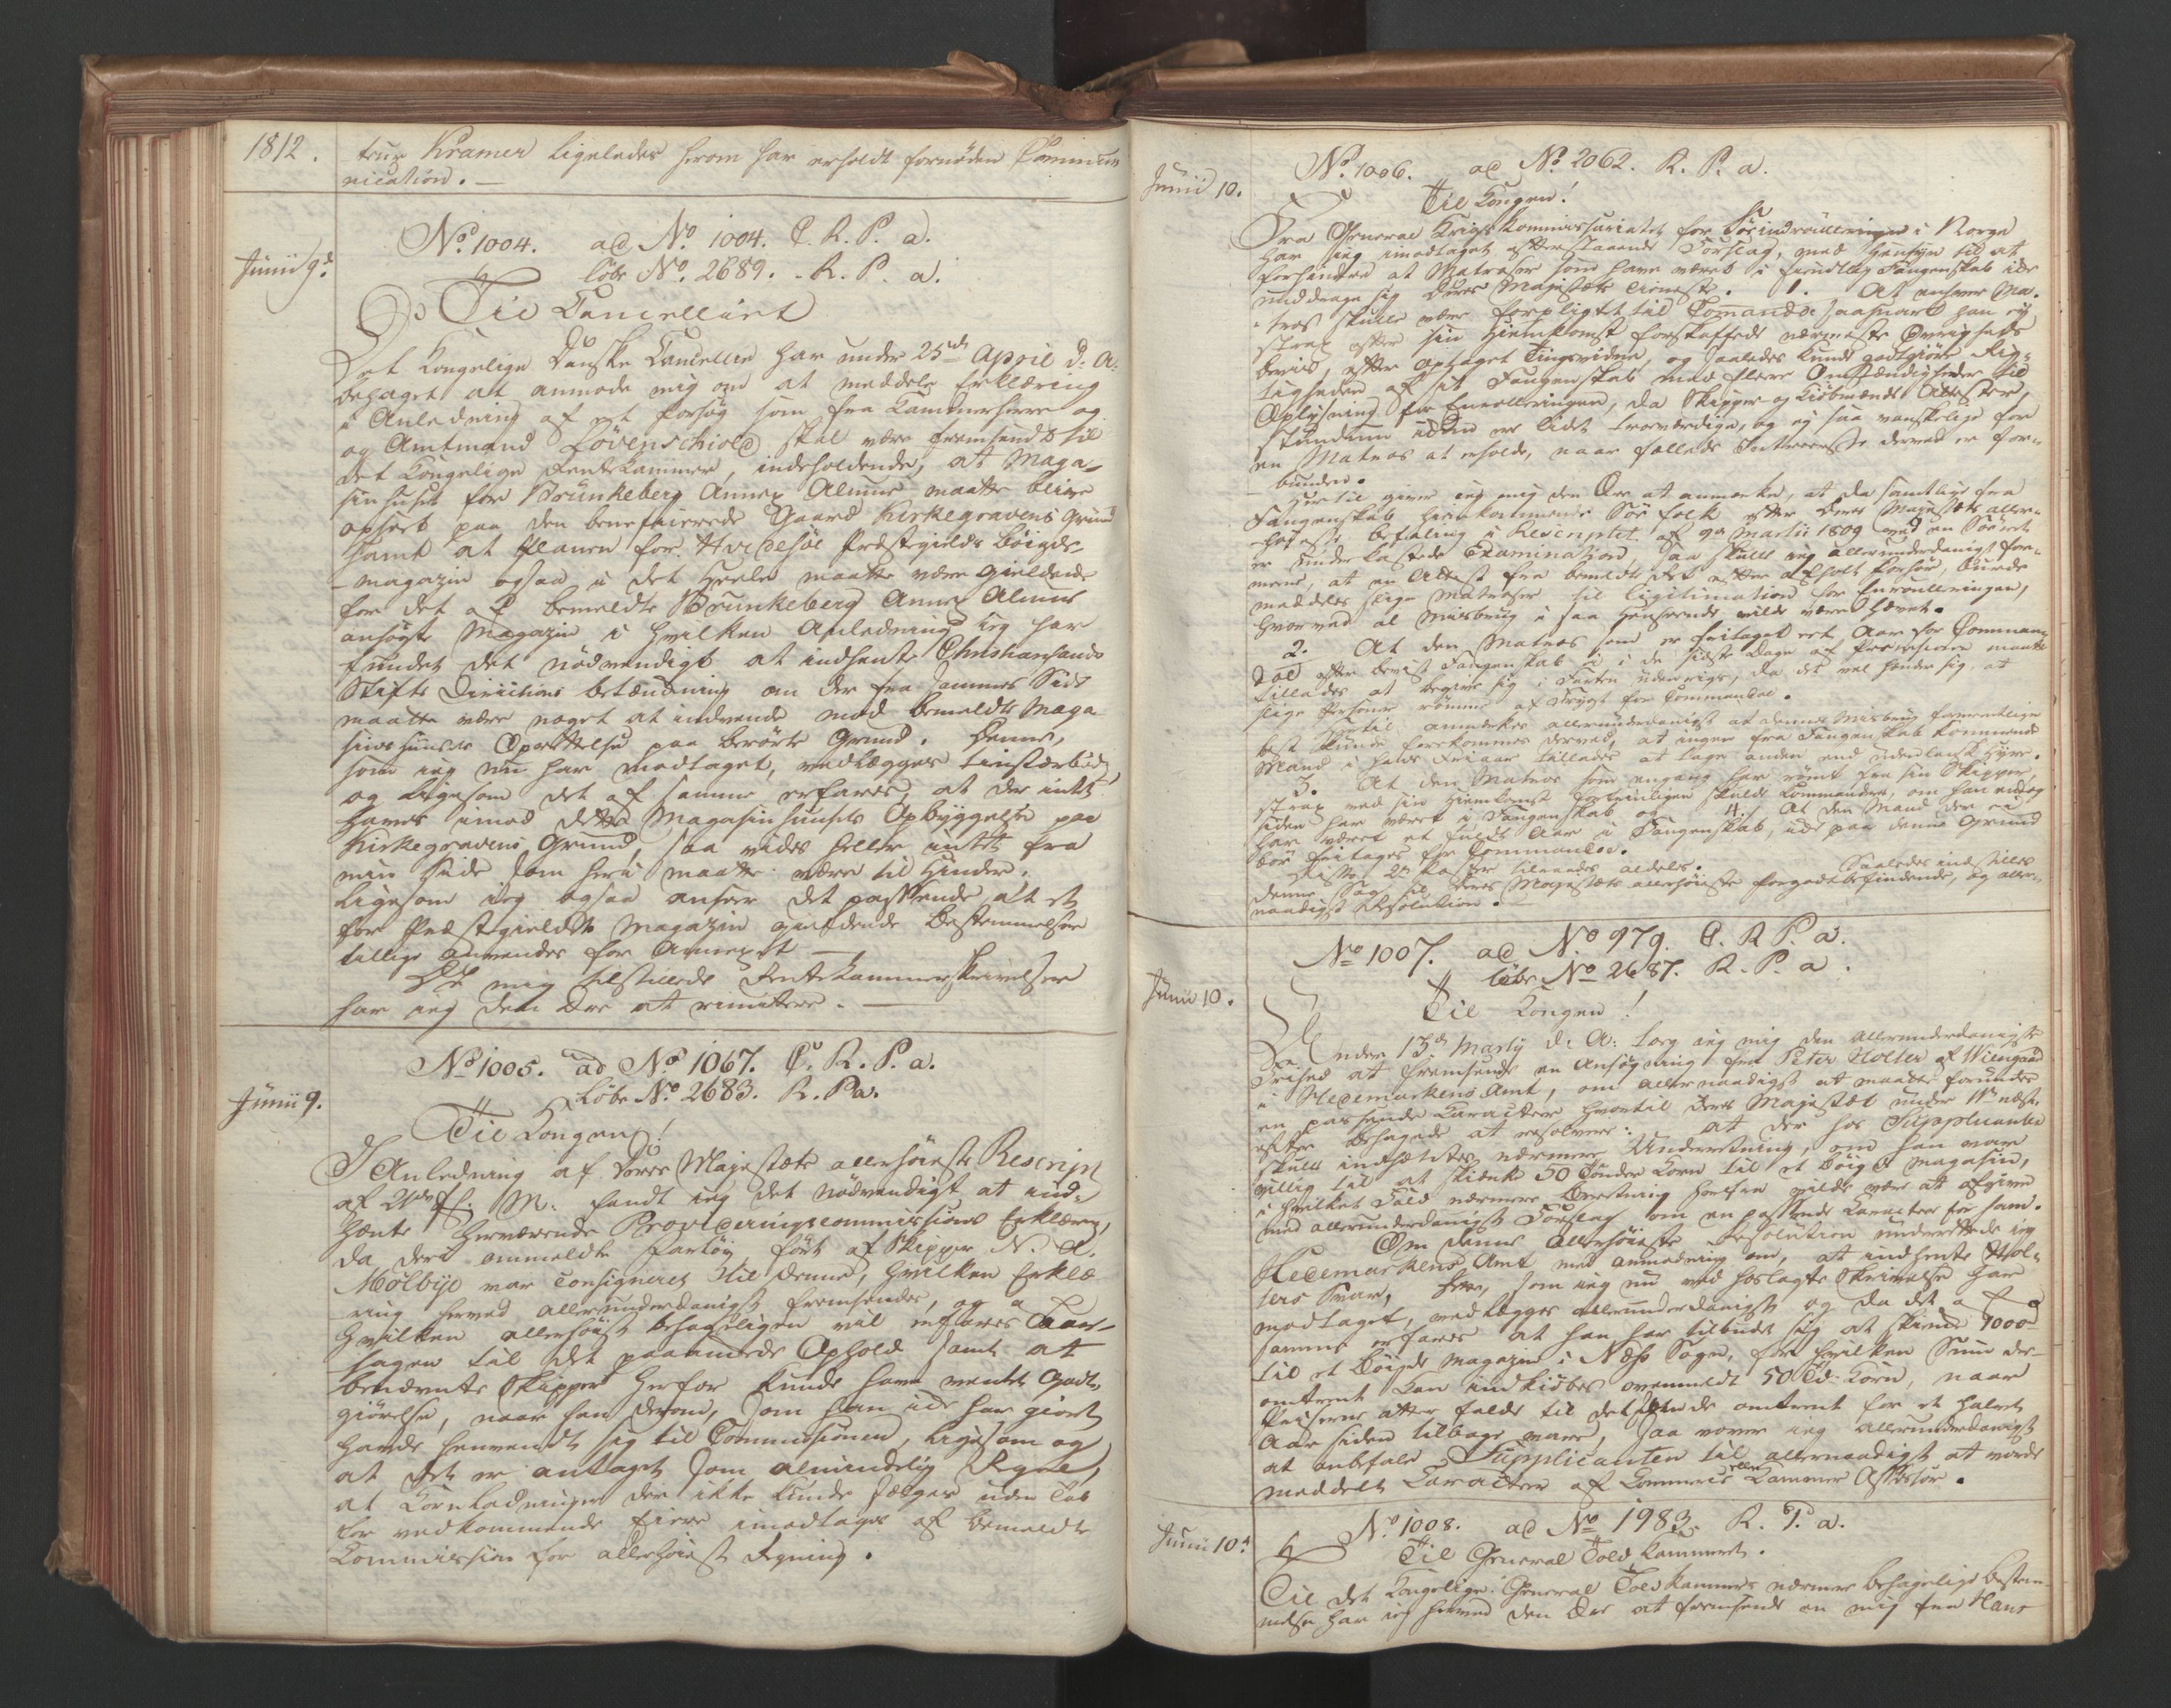 1812.
trup Kramer ligeledes herom har erholdt fornøden Commu-
nication. —
Junii 9d.
No. 1004. ad No. 1004. C. R. P. a.
løbe No. 2689. R. P. a.
Til Cancelliet
Det Kongelige Danske Cancellie har under 25de April d. A.
behaget at anmode mig om at meddele Erklæring
i Anledning af et forslag som fra Kammerherre og
og Amtmand Løvenschiold skal være fremsendt til
det Kongelige Rentekammer, indeholdende, at Maga-
sinhuset for Brunkeberg Annex Almue maatte blive
opført paa den beneficerede Gaard Kirkegravens Grund
samt at Planen for Hvidesøe Præstegields Bøigde-
magazin ogsaa i det Heele maatte være gieldende
for det af bemeldte Brunkeberg Annex Almue
ansøgte Magazin i hvilken Anledning jeg har
fundet det nødvendigt at indhente Christiansands
Stifts Directions betænkning om der fra sammes Side
maatte være noget at indvende mod bemeldte Maga
sins huusets Oprettelse paa berørte Grund. Denne,
som jeg nu har modtaget, vedlægges tienstærbødigst
og ligesom det af samme erfares, at der intet
haves imod dette Magasinhuusets Opbyggelse paa
Kirkegravens Grund, saa vides heller intet fra
min Side som heri maatte være til Hinder,
ligesom jeg ogsaa anseer det passende at et
for Præstegieldets Magazin gieldende Bestemmelser
tillige anvendes for Annexet —
De mig tilstillede Rentekammerskrivelser
har jeg den Ære at remittere. —
Junii 9.
No. 1005. ad No. 1067. C. R. P. a.
Løbe No. 2683. R. P. a.
Til Kongen!
I Anledning af Deres Majestæts allerhøieste Rescript
af 21de f. M. fandt jeg det nødvendigt at ind-
hente herværende Provideringscommissions Erklæring,
da det ommeldte Fartøy, ført af Skipper N. A.
Mølbye var consigneret til denne, hvilken Erklæ
ring herved allerunderdanigst fremsendes, og a
hvilken allerhøist behageligen vil erfares Aar-
sagen til det paaankede Ophold samt at
benævnte Skipper herfor kunde have ventet Godt-
giørelse, naar han derom, som han ikke har giort
havde henvendt sig til Commissionen, ligesom og
at det er antaget som almindelig Regel,
at Kornladninger der ikke kunde sælges uden Tab
for vedkommende Eiere imodtages af bemeldte
Commission for allerhøieste Regning.
Junii 10.
No. 1006. ad No. 2062. R. P. a.
Til Kongen!
Fra General Krigs Kommissariatet for Søeindroulleringen i Norge
har jeg imodtaget efterstaaende Forslag, med Hensyn til at
forhindre at Matroser som have været i fiendtlig Fangenskab ikke
unddrage sig Deres Majestæts Tieneste. 1. At enhver Ma-
tros skulle være forpligtet til Comando saasnart han ey
strax efter sin Hiemkomst forskaffede nærmeste Øvrigheds
beviis, efter optaget Tingsvidne, og saaledes kunde godtgiøre Rig-
tigheden af sit Fangenskab med flere Omstændigheder til
Oplysning for Enrolleringen, da Skipper og Kiøbmænds Attester,
stundum uden er lidet troværdige, og ej saa vanskelige for
en Matros at erholde, naar fælleds Intteresse derved er for-
bunden.
Hertil giver jeg mig den Ære at anmærke, at da samtlige fra
Fangenskab hiemkommende Søe folk efter Deres Majestæts aller-
høieste befaling i Rescriptet af 9de Martii 1809 ved en Søeret
er underkastede Examination saa skulle jeg allerunderdanigst for-
mene, at en Attest fra bemeldte Ret efter afholt Forhør, burde
meddeles slige Matroser til ligitimation for Enroulleringen,
hvorved al Misbrug i saa Henseende vilde være hævet.
2. At den Matros som er fritaget eet Aar for Comman-
do efter beviist Fangenskab ei i de sidste Dage af Permissionen maatte
tillades at begive sig i Farten udenrigs, da det vel hender sig, at
slige Personer rømme af Frygt for Commandoe.
Hertil anmærkes allerunderdanigst at denne Misbrug formeentlige
best kunde forekommes derved, at ingen fra Fangenskab kommende
Mand i hans Friaar tillades at tage anden end indenlansk Hyre.
3. At den Matros som engang har rømt fra sin Skipper,
strax ved sin Hiemkomst skulde Commanderes, om han endog
siden har været i Fangenskab og 4. At den Mand der ei
har været et fuldt Aar i Fangenskab, ikke paa denne Grund
bør fritages for Commandoe.
Disse 2de Poster tilraades aldeles. Saaledes indstilles
denne Sag til Deres Majestæts allerhøieste forgodtbefindende, og aller-
naadigst Resolution.
Junii 10.
No. 1007. ad No. 979. C. R. P. a.
løbe No. 2687. R. P. a.
Til Kongen!
Under 13de Marty d. A. tog jeg mig den allerunderdanigste
Frihed at fremsende en Ansøgning fra Peter Holter af Wiengaard
i Hedemarkens Amt, om allernaadigst at maatte forundes
en passende Caracteer hvortil Deres Majestæt under 11te næst-
efter behagede at resolvere: at der hos Supplicanten
skulle indhentes nærmere Underretning, om han var
villig til at skienke 50 Tønder Korn til et Bøigde Magasin,
i hvilket Fald nærmere Beretning herfra vilde være at afgive
med allerunderdanigst Forslag om en passende Caracteer for ham.
Om denne Allerhøieste Resolution underrettede jeg
Hedemarkens Amt med anmodning om, at indhente Hol-
ters Svar, som jeg nu ved hoslagte Skrivelse har
modtaget, vedlægges allerunderdanigst og da det a
samme erfares at han har tilbudet sig at skienke 1000
til et Bøigde Magazin i Næss Sogn, for hvilken Sum der
omtrent kan indkiøbes ovenmeldt 50 Td. Korn, naar
Priserne atter falde til det omtrent for et halvt
Aar siden tilbage vare, saa vover jeg allerunderdanigst
at anbefale Supplicanten til allernaadigst at vorde
meddelt Caracteer af Commerce eller Kammer Assessor.
Junii 10d.
No. 1008. ad No. 1983. R. P. a.
Til General Told Kammeret.
Til det Kongelige General Toldkammers nærmere behagelige bestem-
melse har jeg herved den Ære at fremsende en mig fra Hans